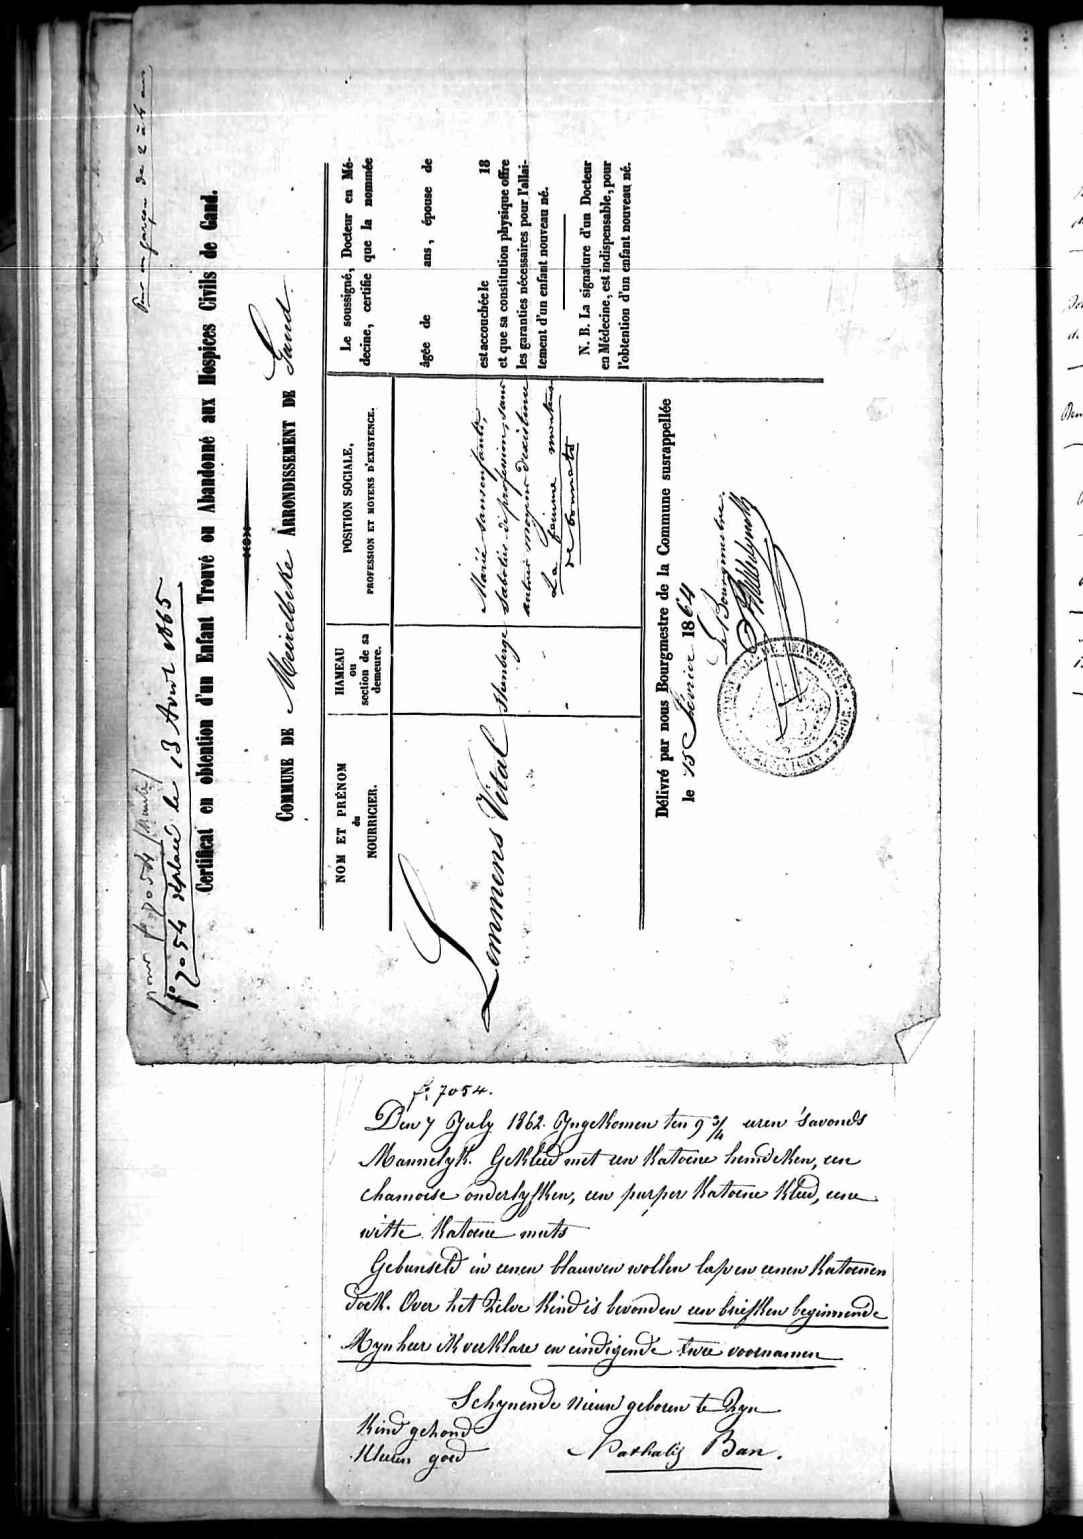 Pour un garçon de 2 à 4 ans
pour fo 7054
fo 7054 déplacé le 13 Avril 1865
Certificat en obtention d'un Enfant Trouvé ou Abandonné aux Hospices Civils de Gand.
COMMUNE DE Meirelbeke ARRONDISSEMENT DE Gand
NOM ET PRÉNOM
du
NOURRICIER.
Lemmens Vital
HAMEAU
ou
section de sa
demeure.
POSITION SOCIALE,
PROFESSION ET MOYENS D'EXISTENCE.
Marié sans enfants,
sabotier de profession, sans
autres moyens d'existence
La femme
de bonnets
Le soussigné, Docteur en Mé-
decine, certifie que la nommée
âgée de ans, épouse de
est accouchée le 18
et que sa constitution physique offre
les garanties nécessaires pour l'allai-
tement d'un enfant nouveau né.
N. B. La signature d'un Docteur
en Médecine, est indispensable, pour
l'obtention d'un enfant nouveau né.
Délivré par nous Bourgmestre de la Commune susrappellée
le 15 Février 1864
Le Bourgmestre.
fo 7054.
Den 7 July 1862. Yngekomen ten 9 3/4 uren 's avonds
Mannelyk. Gekleed met een Katoene hemdeken, een
chamoise onderlyfken, een purper Katoene Kleed, eene
witte Katoene muts
Gebunseld in eenen blauwen wollen lap en eenen Katoenen
doek. Over het Zelve Kind is bevonden een briefken beginnende
Mynheer ik verklare en eindigende twee voornamen
Schynende nieuw geboren te Zyn
Kind gezond
Kleeren goed
Nathalis Ban.